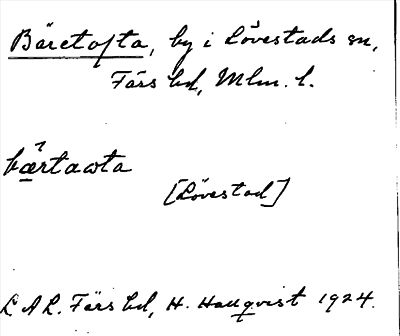 Bäretofta, by i Lövestads sn,
Färs hd, Mlm. l.
bærtawta
[Lövestad]
L A L. Färs hd, H. Hallqvist 1924.